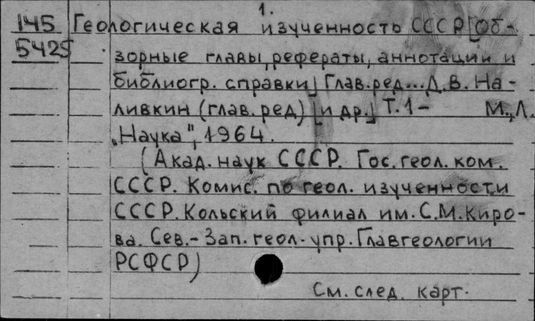 1.
145 Геологическая изученность СССР [Об-
5425 зорные главы, рефераты, аннотации и
библиогр. справки] Глав.ред... Д.В. На-
ливкин (глав. ред) [и др.] Т.1- М., Л.
"Наука", 1964.
(Акад. наук СССР. Гос. геол. ком.
СССР. Комис. по геол. изученности
СССР. Кольский филиал им. С.М. Киро-
ва. Сев.-Зап. геол. упр. Главгеологии
РСФСР)
См. след. карт.